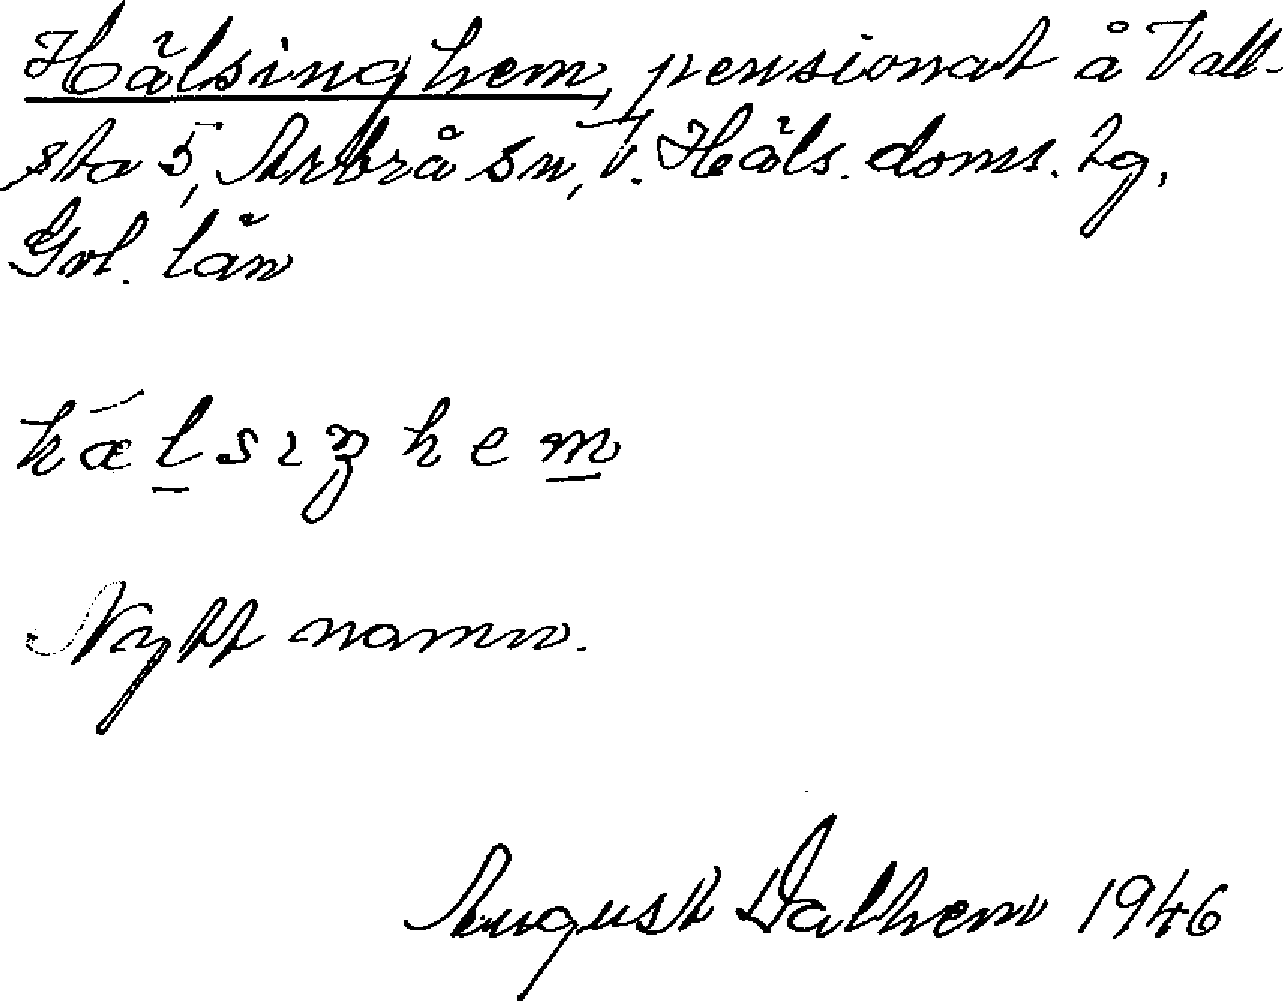 Hälsinghem, pensionat å Vall-
sta 5, Arbrå sn, V. Häls. doms. lg,
Gvl. län
hælsıŋhem
Nytt namn.
August Dalhem 1946